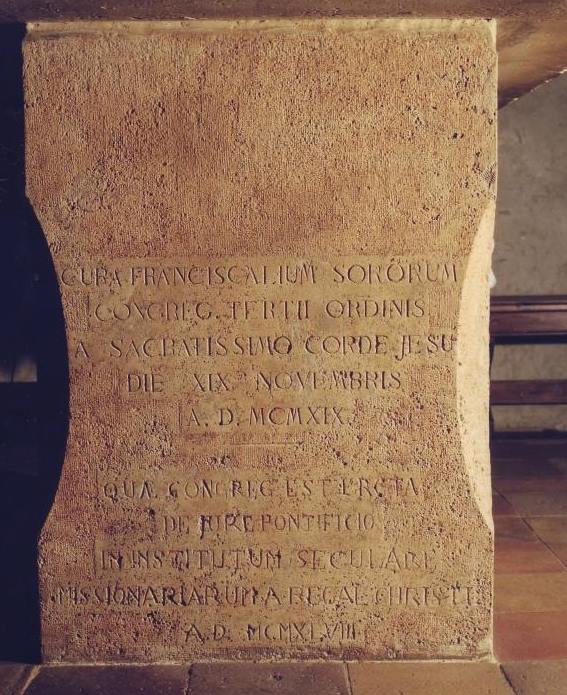 CURA FRANCISCALIUM SORORUM
CONGREG. TERTII ORDINIS
A SACRATISSIMO CORDE JESU
DIE XIX NOVEMBRIS
A. D. MCMXIX
QUÆ CONGREG. EST ERCTA
DE JURE PONTIFICIO
IN INSTITUTUM SECULARE
MISSIONARIARUM A REGAL. CHRISTI
A.D. MCMXLVIII